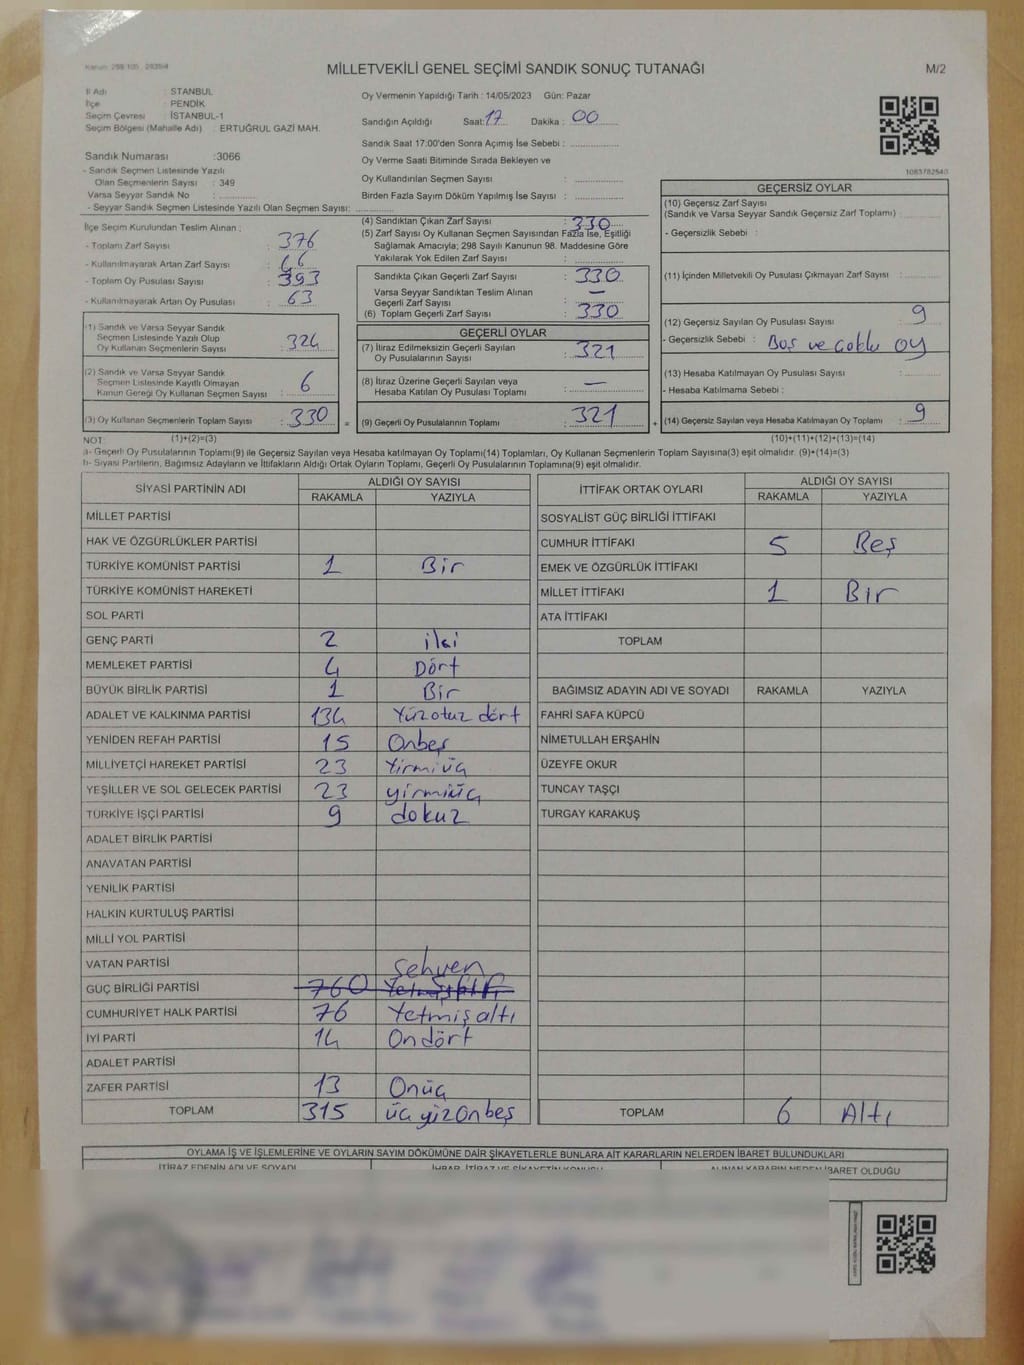 MİLLETVEKİLİ GENEL SEÇİMİ SANDIK SONUÇ TUTANAĞI
M/2
İl Adı : STANBUL
İlçe : PENDİK
Seçim Çevresi : İSTANBUL-1
Seçim Bölgesi (Mahalle Adı) : ERTUĞRUL GAZİ MAH.
Oy Vermenin Yapıldığı Tarih : 14/05/2023 Gün: Pazar
Sandığın Açıldığı Saat: 17 Dakika : 00
Sandık Saat 17:00'den Sonra Açımış İse Sebebi :
Oy Verme Saati Bitiminde Sırada Bekleyen ve
Oy Kullandırılan Seçmen Sayısı :
Birden Fazla Sayım Döküm Yapılmış İse Sayısı :
1083782540
Sandık Numarası :3066
- Sandık Seçmen Listesinde Yazılı
Olan Seçmenlerin Sayısı : 349
Varsa Seyyar Sandık No :
- Seyyar Sandık Seçmen Listesinde Yazılı Olan Seçmen Sayısı:
İlçe Seçim Kurulundan Teslim Alınan ;
- Toplam Zarf Sayısı : 376
- Kullanılmayarak Artan Zarf Sayısı : 46
- Toplam Oy Pusulası Sayısı : 393
- Kullanılmayarak Artan Oy Pusulası : 63
(1) Sandık ve Varsa Seyyar Sandık
Seçmen Listesinde Yazılı Olup
Oy Kullanan Seçmenlerin Sayısı : 324
(2) Sandık ve Varsa Seyyar Sandık
Seçmen Listesinde Kayıtlı Olmayan
Kanun Gereği Oy Kullanan Seçmen Sayısı : 6
(3) Oy Kullanan Seçmenlerin Toplam Sayısı : 330
(4) Sandıktan Çıkan Zarf Sayısı : 330
(5) Zarf Sayısı Oy Kullanan Seçmen Sayısından Fazla İse, Eşitliği
Sağlamak Amacıyla; 298 Sayılı Kanunun 98. Maddesine Göre
Yakılarak Yok Edilen Zarf Sayısı :
Sandıkta Çıkan Geçerli Zarf Sayısı : 330
Varsa Seyyar Sandıktan Teslim Alınan
Geçerli Zarf Sayısı : —
(6) Toplam Geçerli Zarf Sayısı : 330
GEÇERLİ OYLAR
(7) İtiraz Edilmeksizin Geçerli Sayılan
Oy Pusulalarının Sayısı : 321
(8) İtiraz Üzerine Geçerli Sayılan veya
Hesaba Katılan Oy Pusulası Toplamı : —
(9) Geçerli Oy Pusulalarının Toplamı : 321
GEÇERSİZ OYLAR
(10) Geçersiz Zarf Sayısı
(Sandık ve Varsa Seyyar Sandık Geçersiz Zarf Toplamı) :
- Geçersizlik Sebebi :
(11) İçinden Milletvekili Oy Pusulası Çıkmayan Zarf Sayısı :
(12) Geçersiz Sayılan Oy Pusulası Sayısı : 9
- Geçersizlik Sebebi : Boş ve çoklu oy
(13) Hesaba Katılmayan Oy Pusulası Sayısı :
- Hesaba Katılmama Sebebi :
(14) Geçersiz Sayılan veya Hesaba Katılmayan Oy Toplamı : 9
NOT: (1)+(2)=(3) (10)+(11)+(12)+(13)=(14)
a- Geçerli Oy Pusulalarının Toplamı(9) ile Geçersiz Sayılan veya Hesaba Katılmayan Oy Toplamı(14) Toplamları, Oy Kullanan Seçmenlerin Toplam Sayısına(3) eşit olmalıdır. (9)+(14)=(3)
b- Siyasi Partilerin, Bağımsız Adayların ve İttifakların Aldığı Ortak Oyların Toplamı, Geçerli Oy Pusulalarının Toplamına(9) eşit olmalıdır.
SİYASİ PARTİNİN ADI ALDIĞI OY SAYISI
RAKAMLA YAZIYLA
MİLLET PARTİSİ
HAK VE ÖZGÜRLÜKLER PARTİSİ
TÜRKİYE KOMÜNİST PARTİSİ 1 Bir
TÜRKİYE KOMÜNİST HAREKETİ
SOL PARTİ
GENÇ PARTİ 2 iki
MEMLEKET PARTİSİ 4 Dört
BÜYÜK BİRLİK PARTİSİ 1 Bir
ADALET VE KALKINMA PARTİSİ 134 Yüzotuz dört
YENİDEN REFAH PARTİSİ 15 Onbeş
MİLLİYETÇİ HAREKET PARTİSİ 23 Yirmi üç
YEŞİLLER VE SOL GELECEK PARTİSİ 23 yirmiüç
TÜRKİYE İŞÇİ PARTİSİ 9 dokuz
ADALET BİRLİK PARTİSİ
ANAVATAN PARTİSİ
YENİLİK PARTİSİ
HALKIN KURTULUŞ PARTİSİ
MİLLİ YOL PARTİSİ
VATAN PARTİSİ Sehven
GÜÇ BİRLİĞİ PARTİSİ 760
CUMHURİYET HALK PARTİSİ 76 Yetmiş altı
İYİ PARTİ 14 Ondört
ADALET PARTİSİ
ZAFER PARTİSİ 13 Onüç
TOPLAM 315 üç yüzonbeş
İTTİFAK ORTAK OYLARI ALDIĞI OY SAYISI
RAKAMLA YAZIYLA
SOSYALİST GÜÇ BİRLİĞİ İTTİFAKI
CUMHUR İTTİFAKI 5 Beş
EMEK VE ÖZGÜRLÜK İTTİFAKI
MİLLET İTTİFAKI 1 Bir
ATA İTTİFAKI
TOPLAM
BAĞIMSIZ ADAYIN ADI VE SOYADI RAKAMLA YAZIYLA
FAHRİ SAFA KÜPCÜ
NİMETULLAH ERŞAHİN
ÜZEYFE OKUR
TUNCAY TAŞÇI
TURGAY KARAKUŞ
TOPLAM 6 Altı
OYLAMA İŞ VE İŞLEMLERİNE VE OYLARIN SAYIM DÖKÜMÜNE DAİR ŞİKAYETLERLE BUNLARA AİT KARARLARIN NELERDEN İBARET BULUNDUKLARI
İTİRAZ EDENİN ADI VE SOYADI İHBAR, İTİRAZ VE ŞİKAYETİN KONUSU ALINAN KARARIN NEDEN İBARET OLDUĞU